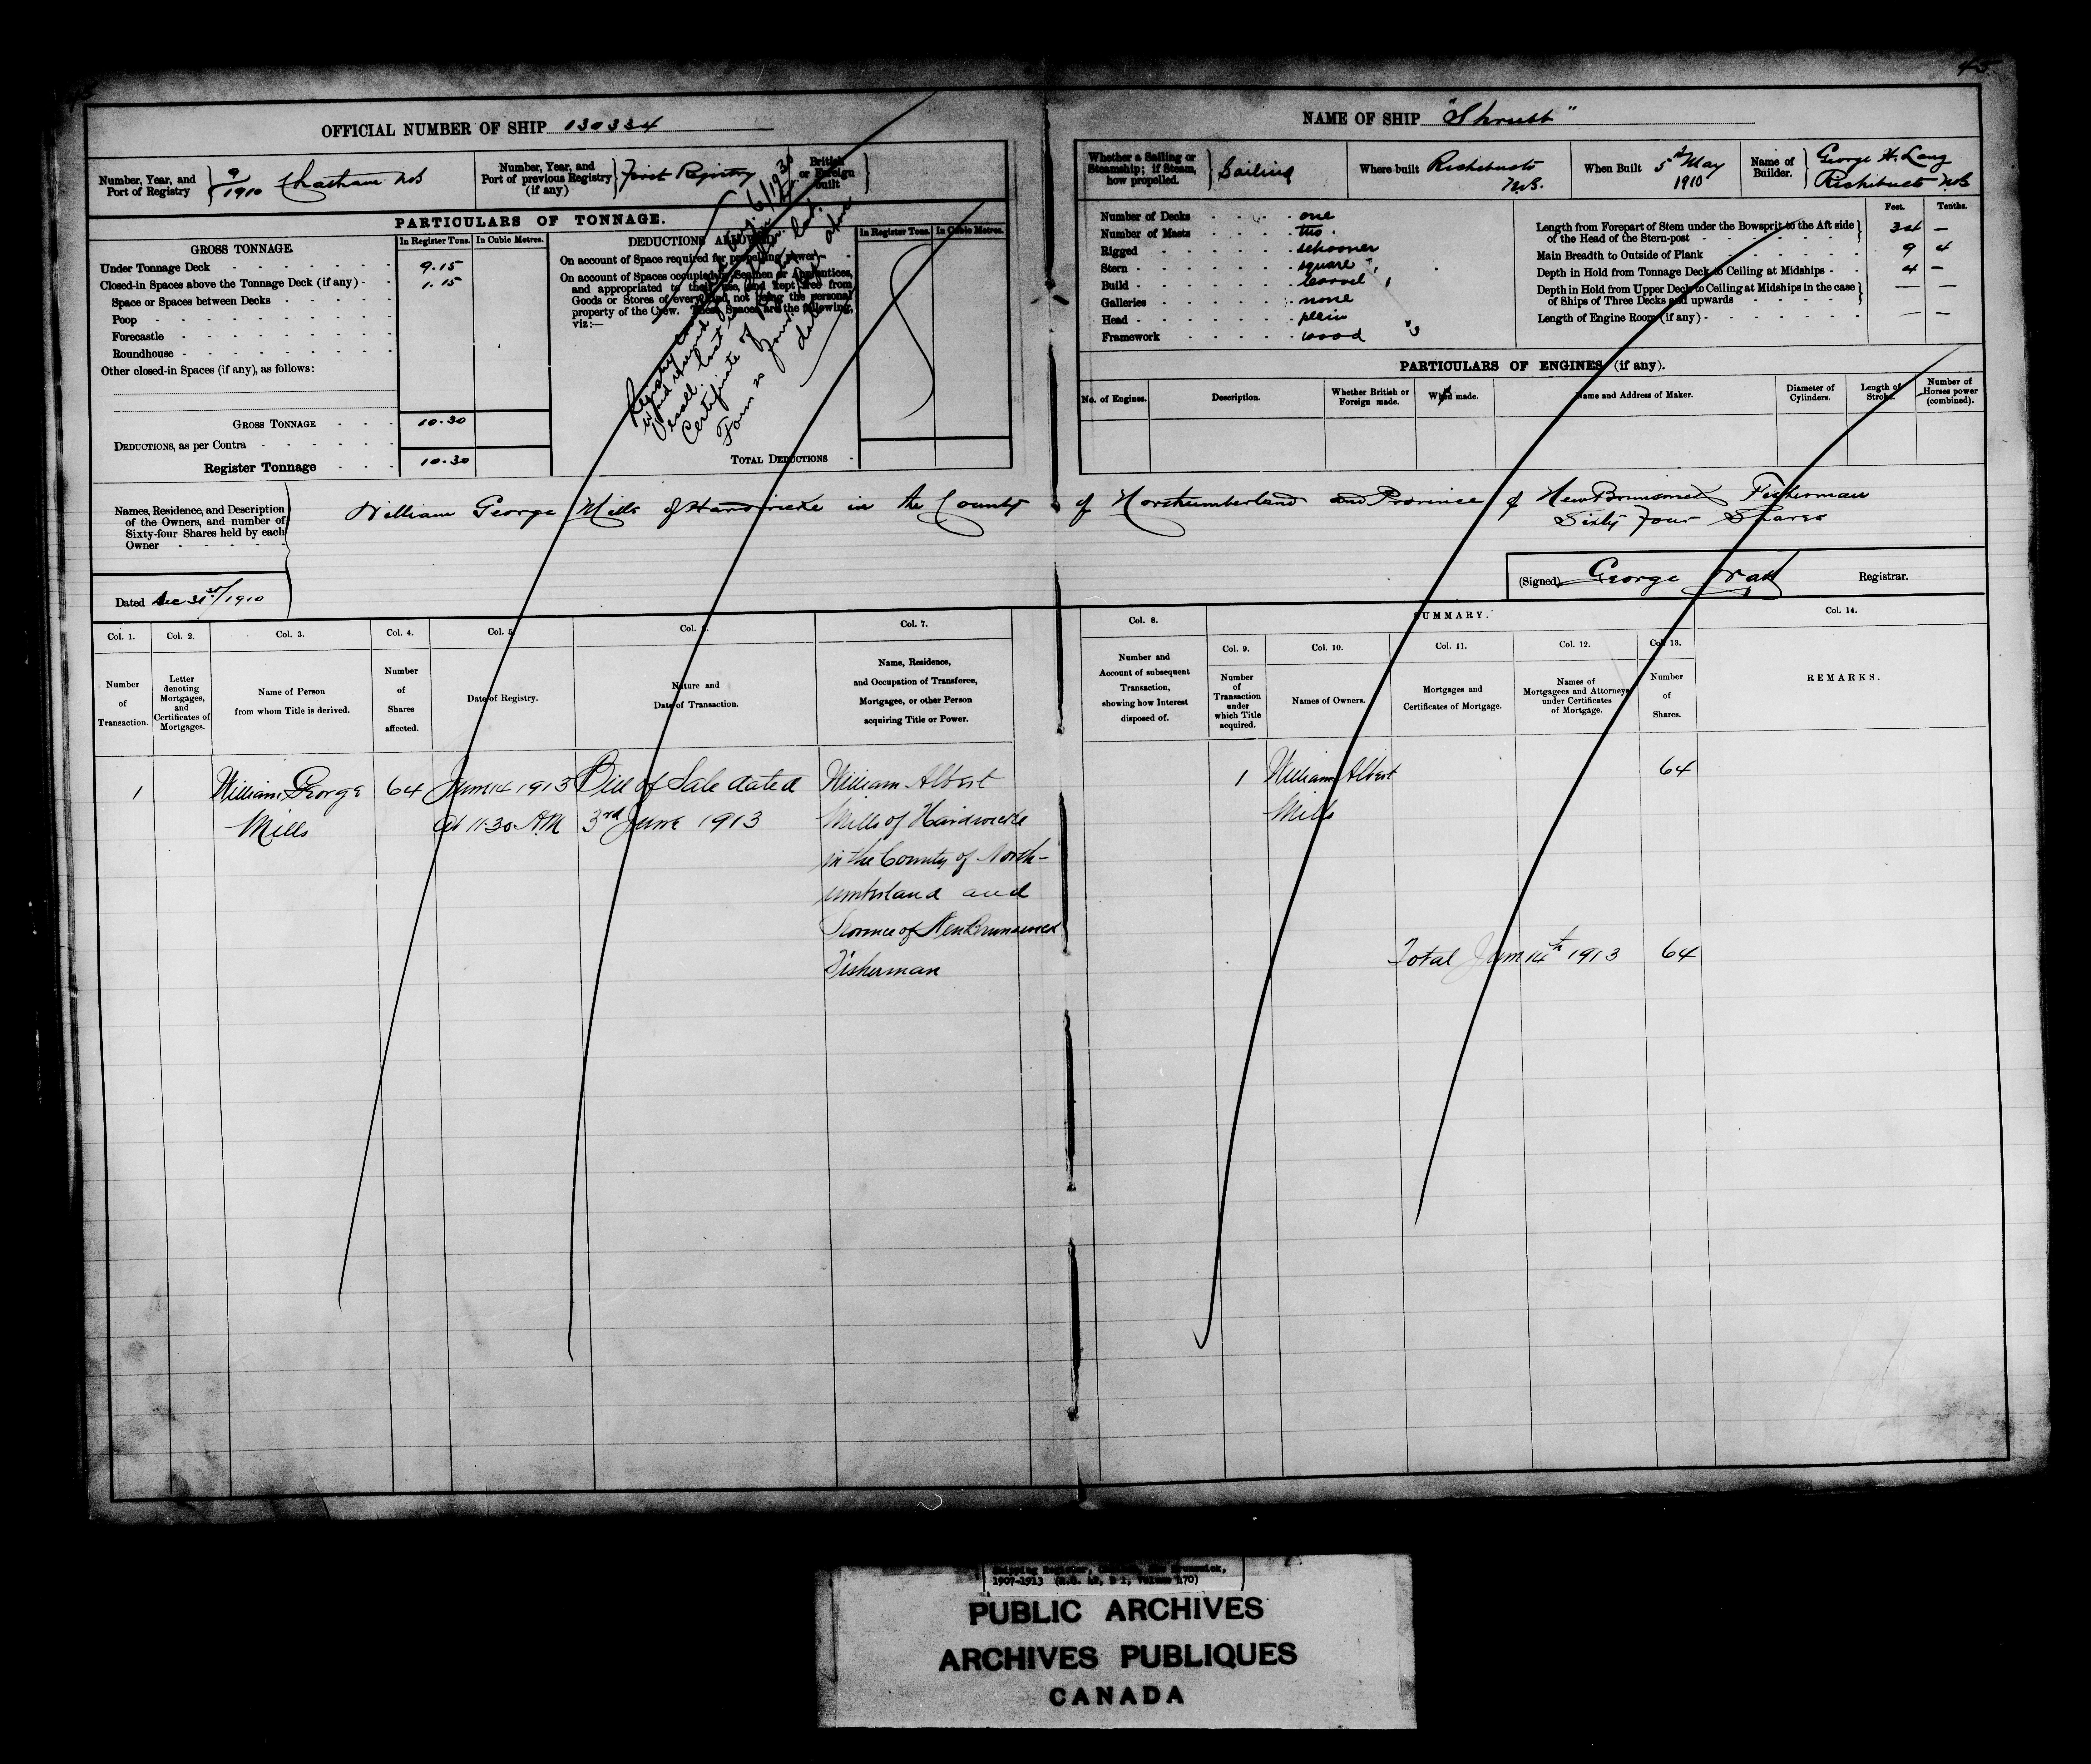 45
OFFICIAL NUMBER OF SHIP 130334
NAME OF SHIP "Shrubb"
Number, Year, and Port of Registry } 9/1910 Chatham NB
Number, Year, and Port of previous Registry (if any) } First Registry
British or Foreign built }
Whether a Sailing or Steamship; if Steam, how propelled. } Sailing
Where built Richibucto N.B.
When Built 5th May 1910
Name of Builder. } George H. Long Richibucto NB
PARTICULARS OF TONNAGE.
GROSS TONNAGE.
In Register Tons. In Cubic Metres.
Under Tonnage Deck 9.15
Closed-in Spaces above the Tonnage Deck (if any) 1.15
Space or Spaces between Decks
Poop
Forecastle
Roundhouse
Other closed-in Spaces (if any), as follows:
GROSS TONNAGE 10.30
DEDUCTIONS, as per Contra
Register Tonnage 10.30
DEDUCTIONS ALLOWED
In Register Tons. In Cubic Metres.
On account of Space required for propelling power
On account of Spaces occupied by Seamen or Apprentices,
and appropriated to their use, and kept free from
Goods or Stores of every kind, not being the personal
property of the Crew. These Spaces are the following,
viz:—
TOTAL DEDUCTIONS
Registry
Vessel lost
Certificate of
Form 20
Number of Decks one
Number of Masts two
Rigged schooner
Stern square
Build carvel
Galleries none
Head plain
Framework wood
Feet. Tenths.
Length from Forepart of Stem under the Bowsprit to the Aft side of the Head of the Stern-post 34 —
Main Breadth to Outside of Plank 9 4
Depth in Hold from Tonnage Deck to Ceiling at Midships 4 —
Depth in Hold from Upper Deck to Ceiling at Midships in the case of Ships of Three Decks and upwards — —
Length of Engine Room (if any) — —
PARTICULARS OF ENGINES (if any).
No. of Engines. Description. Whether British or Foreign made. When made. Name and Address of Maker. Diameter of Cylinders. Length of Stroke. Number of Horses power (combined).
Names, Residence, and Description of the Owners, and number of Sixty-four Shares held by each Owner
William George Mills of Hardwicke in the County of Northumberland and Province of New Brunswick Fisherman
Sixty Four Shares
Dated Dec 31st/1910
(Signed) George Watt Registrar.
Col. 1. Col. 2. Col. 3. Col. 4. Col. 5. Col. 6. Col. 7. Col. 8. SUMMARY. Col. 14.
Col. 9. Col. 10. Col. 11. Col. 12. Col. 13.
Number of Transaction.
Letter denoting Mortgages, and Certificates of Mortgages.
Name of Person from whom Title is derived.
Number of Shares affected.
Date of Registry.
Nature and Date of Transaction.
Name, Residence, and Occupation of Transferee, Mortgagee, or other Person acquiring Title or Power.
Number and Account of subsequent Transaction, showing how Interest disposed of.
Number of Transaction under which Title acquired.
Names of Owners.
Mortgages and Certificates of Mortgage.
Names of Mortgagees and Attorneys under Certificates of Mortgage.
Number of Shares.
REMARKS.
1 William George 64 June 14 1913 Bill of Sale dated William Albert 1 William Albert 64
Mills At 11.30 AM 3rd June 1913 Mills of Hardwicke Mills
in the County of North-
umberland and
Province of New Brunswick
Fisherman
Total June 14th 1913 64
Shipping Register, New Brunswick,
1907-1913 (R.G. 42, B 1, Volume 470)
PUBLIC ARCHIVES
ARCHIVES PUBLIQUES
CANADA